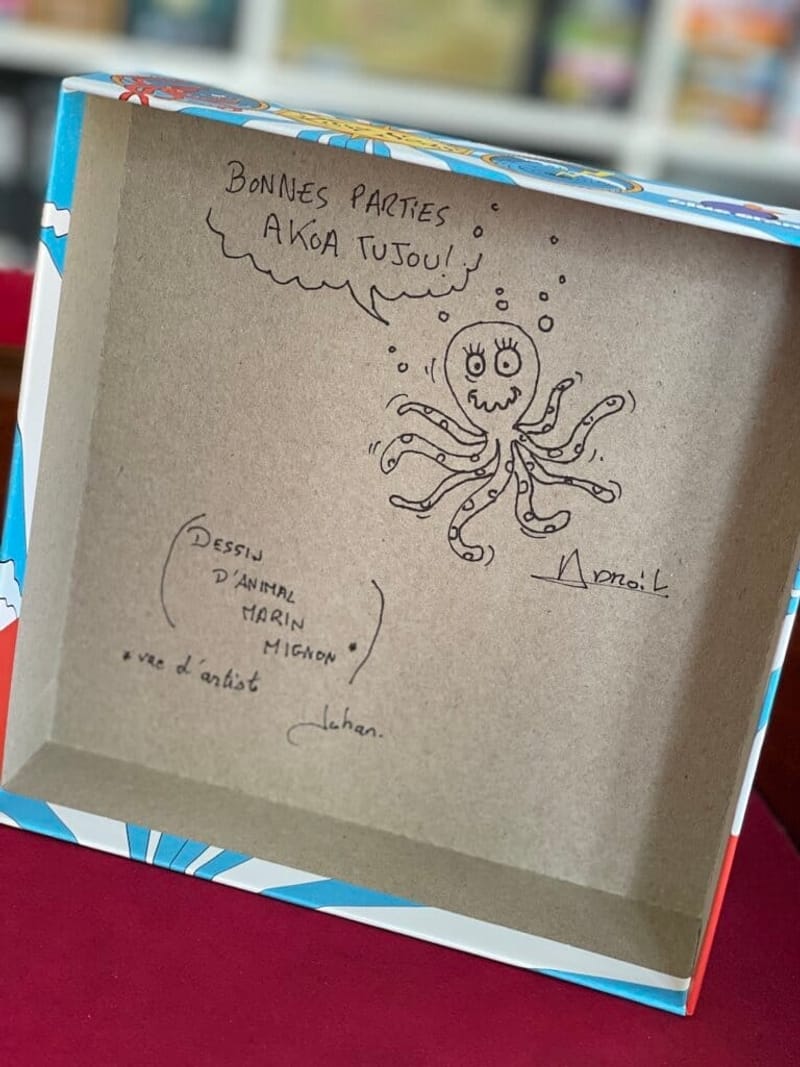 BONNES PARTIES
AKOA TUJOU!
DESSIN
D'ANIMAL
MARIN
MIGNON *
* vue d'artist
Johan.